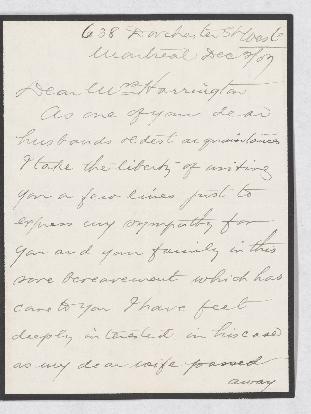 638 Dorchester St West
Montreal Dec 2/07
Dear Mrs Harrington
As one of your dear
husbands oldest acquaintances
I take the liberty of writing
you a few lines just to
express my sympathy for
you and your family in this
sore bereavement which has
come to you I have feet
deeply interested in his case
as my dear wife passed
away